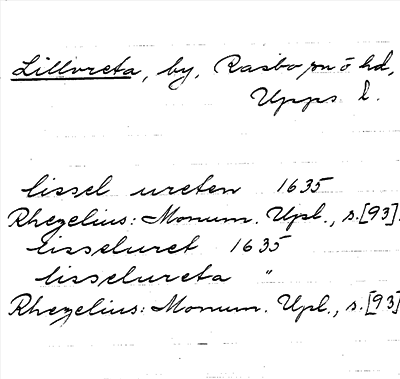 Lillvreta, by, Rasbo sn o hd,
Upps l.
lissel ureten 1635
Rhezelius: Monum. Upl., s. [93].
lisseluret 1635
lisselureta "
Rhezelius: Monum. Upl., s. [93]